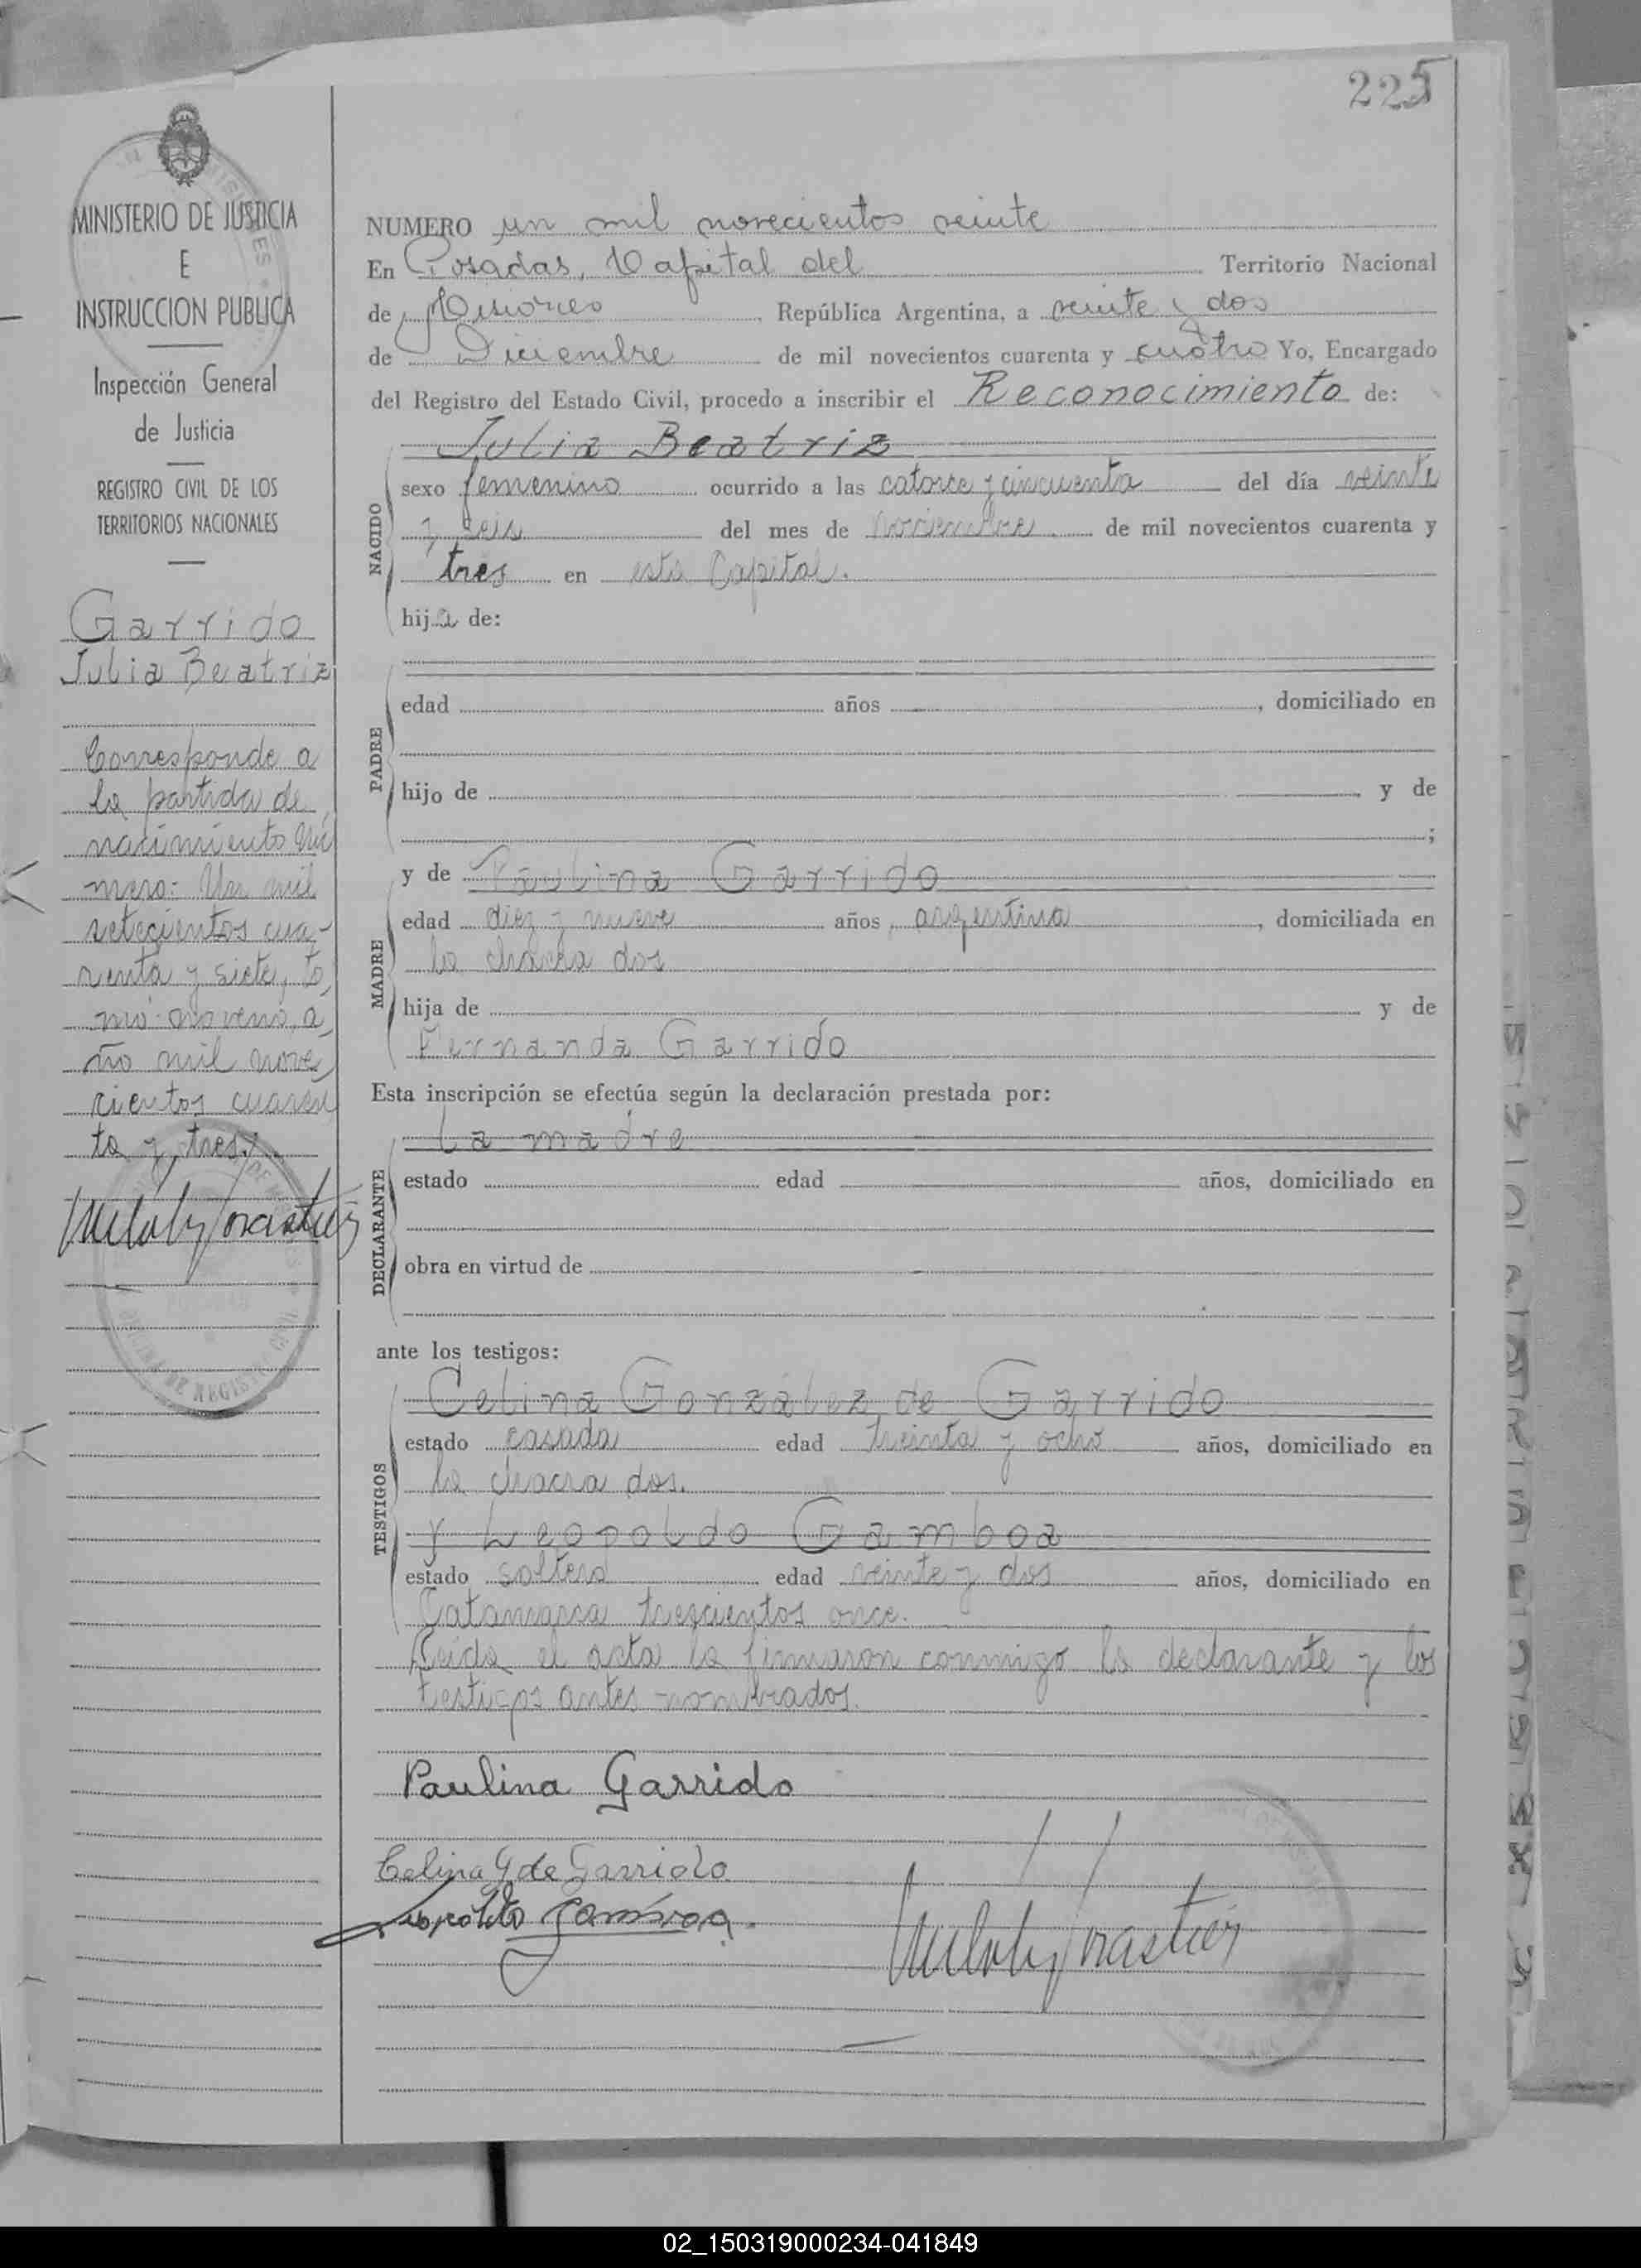 225
MINISTERIO DE JUSTICIA
E
INSTRUCCION PUBLICA
Inspección General
de Justicia
REGISTRO CIVIL DE LOS
TERRITORIOS NACIONALES
Garrido
Julia Beatriz
Corresponde a
la partida de
nacimiento nú
mero: Un mil
setecientos cua-
renta y siete, to,
mo noveno, a,
ño mil nove,
cientos cuaren
ta y tres.
NUMERO un mil novecientos veinte
En Posadas, Capital del Territorio Nacional
de Misiones República Argentina, a veinte y dos
de Diciembre de mil novecientos cuarenta y cuatro Yo, Encargado
del Registro del Estado Civil, procedo a inscribir el Reconocimiento de:
Julia Beatriz
NACIDO
sexo femenino ocurrido a las catorce y cincuenta del día veinte
y seis del mes de Noviembre de mil novecientos cuarenta y
tres en esta Capital.
hija de:
PADRE
edad años , domiciliado en
hijo de y de
;
y de Paulina Garrido
MADRE
edad diez y nueve años, argentina, domiciliada en
la chacra dos
hija de y de
Fernanda Garrido
Esta inscripción se efectúa según la declaración prestada por:
La madre
DECLARANTE
estado edad años, domiciliado en
obra en virtud de
ante los testigos:
TESTIGOS
Celina González de Garrido
estado casada edad treinta y ocho años, domiciliado en
la chacra dos.
y Leopoldo Gamboa
estado soltero edad veinte y dos años, domiciliado en
Catamarca trescientos once.
Leida el acta la firmaron conmigo la declarante y los
testigos antes nombrados.
Paulina Garrido
Celina G de Garrido
Leopoldo Gamboa.
02_150319000234-041849